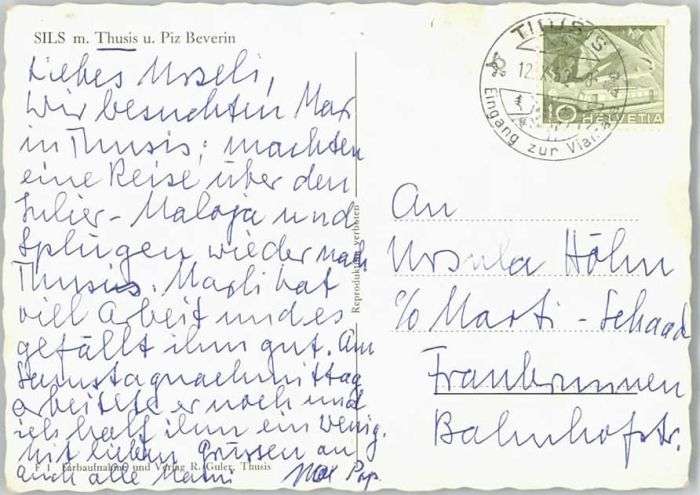 SILS m. Thusis u. Piz Beverin
Liebes Urseli,
Wir besuchten Max
in Thusis; machten
eine Reise über den
Julier-Maloja und
Splügen wieder nach
Thusis. Marli hat
viel Arbeit und es
gefällt ihm gut. Am
Samstagnachmittag
arbeitete er noch und
ich half ihm ein wenig.
Mit lieben Grüssen an
auch alle Mami
Max Pap.
F 1 Farbaufnahme und Verlag R. Guler, Thusis
Reproduktion verboten
THUSIS
12.
Eingang zur Viamala
10 HELVETIA
An
Ursula Höhn
c/o Marti-Schaad
Fraubrunnen
Bahnhofstr.